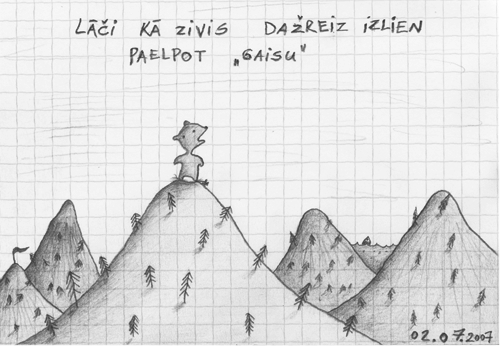 LĀČI KĀ ZIVIS DAŽREIZ IZLIEN
PAELPOT „GAISU”
02.07.2007